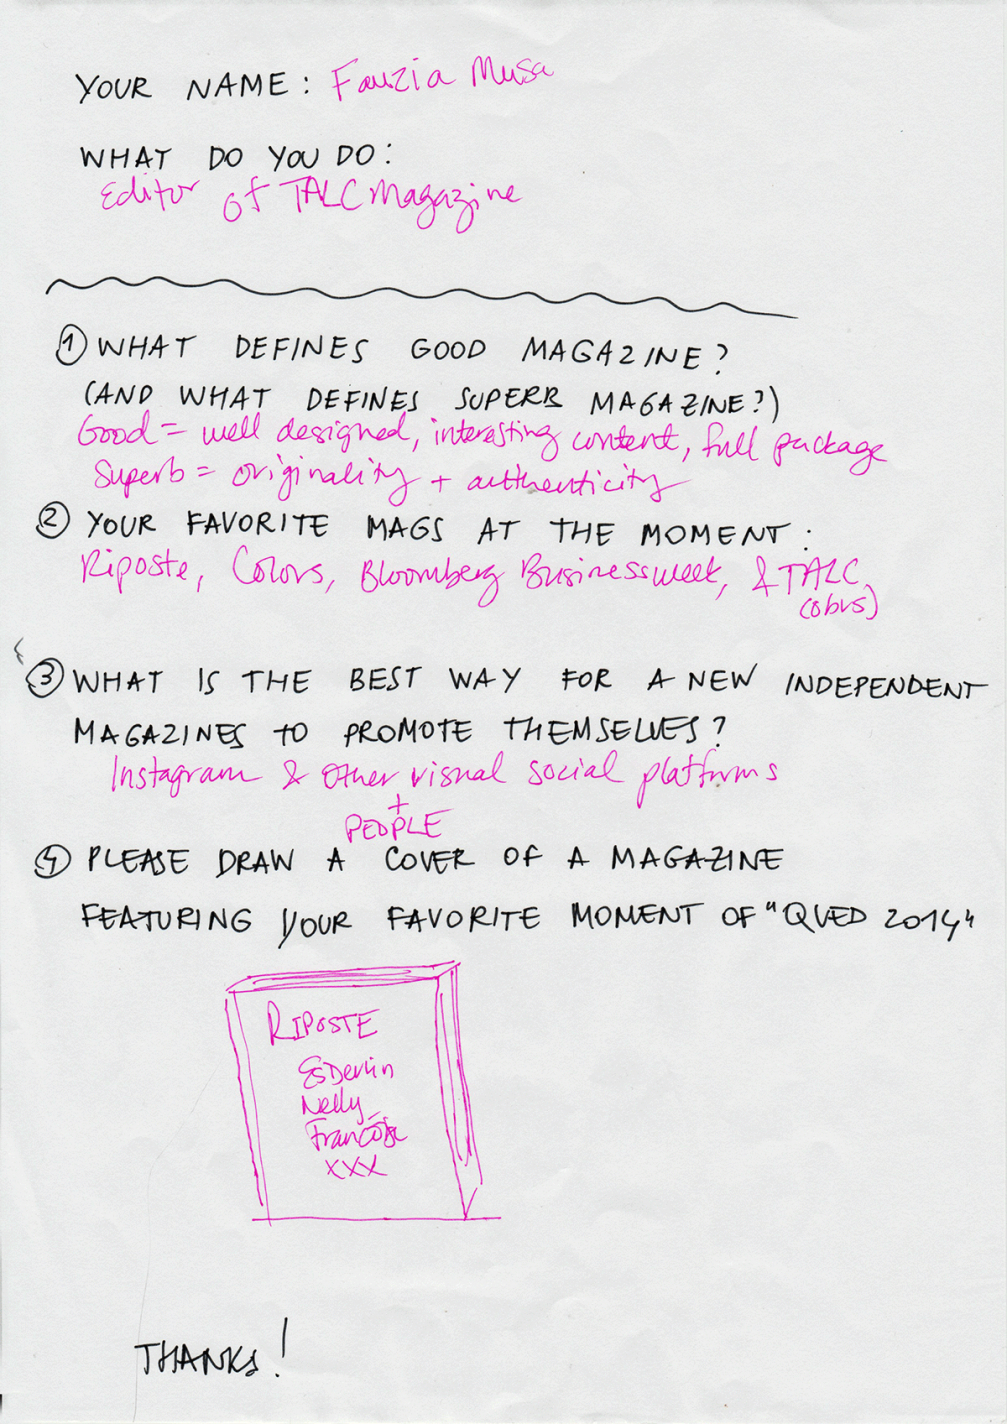 YOUR NAME: Fauzia Musa
WHAT DO YOU DO:
Editor of TALC Magazine
① WHAT DEFINES GOOD MAGAZINE?
(AND WHAT DEFINES SUPERB MAGAZINE?)
Good = well designed, interesting content, full package
Superb = originality + authenticity
② YOUR FAVORITE MAGS AT THE MOMENT:
Riposte, Colors, Bloomberg Businessweek, & TALC
(obvs)
③ WHAT IS THE BEST WAY FOR A NEW INDEPENDENT
MAGAZINES TO PROMOTE THEMSELVES?
Instagram & other visual social platforms
+
PEOPLE
④ PLEASE DRAW A COVER OF A MAGAZINE
FEATURING YOUR FAVORITE MOMENT OF "QVED 2014"
RIPOSTE
Es Devlin
Nelly
Françoise
XXX
THANKS!